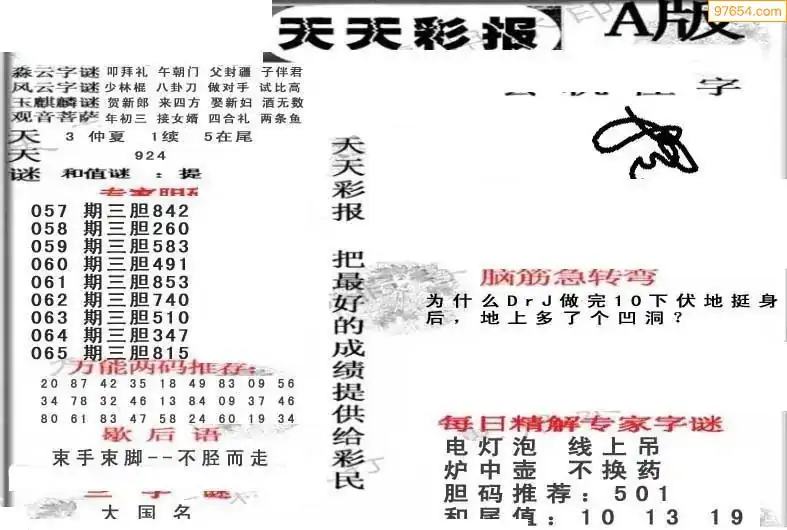 97654.com
天天彩报
A版
森云字谜 叩拜礼 午朝门 父封疆 子伴君
风云字谜 少林棍 八卦刀 做对手 试比高
玉麒麟谜 贺新郎 来四方 娶新妇 酒无数
观音菩萨 年初三 接女婿 四合礼 两条鱼
天 3 仲夏 1续 5在尾
天 924
谜 和值谜 : 提
057 期三胆842
058 期三胆260
059 期三胆583
060 期三胆491
061 期三胆853
062 期三胆740
063 期三胆510
064 期三胆347
065 期三胆815
万能两码推荐:
20 87 42 35 18 49 83 09 56
34 78 32 46 13 84 09 37 46
80 61 83 47 58 24 60 19 34
歇后语
束手束脚--不胫而走
三字谜
大国名
天天彩报 把最好的成绩提供给彩民
字
脑筋急转弯
为什么DrJ做完10下伏地挺身
后，地上多了个凹洞？
每日精解专家字谜
电灯泡 线上吊
炉中壶 不换药
胆码推荐: 501
和尾值: 10 13 19